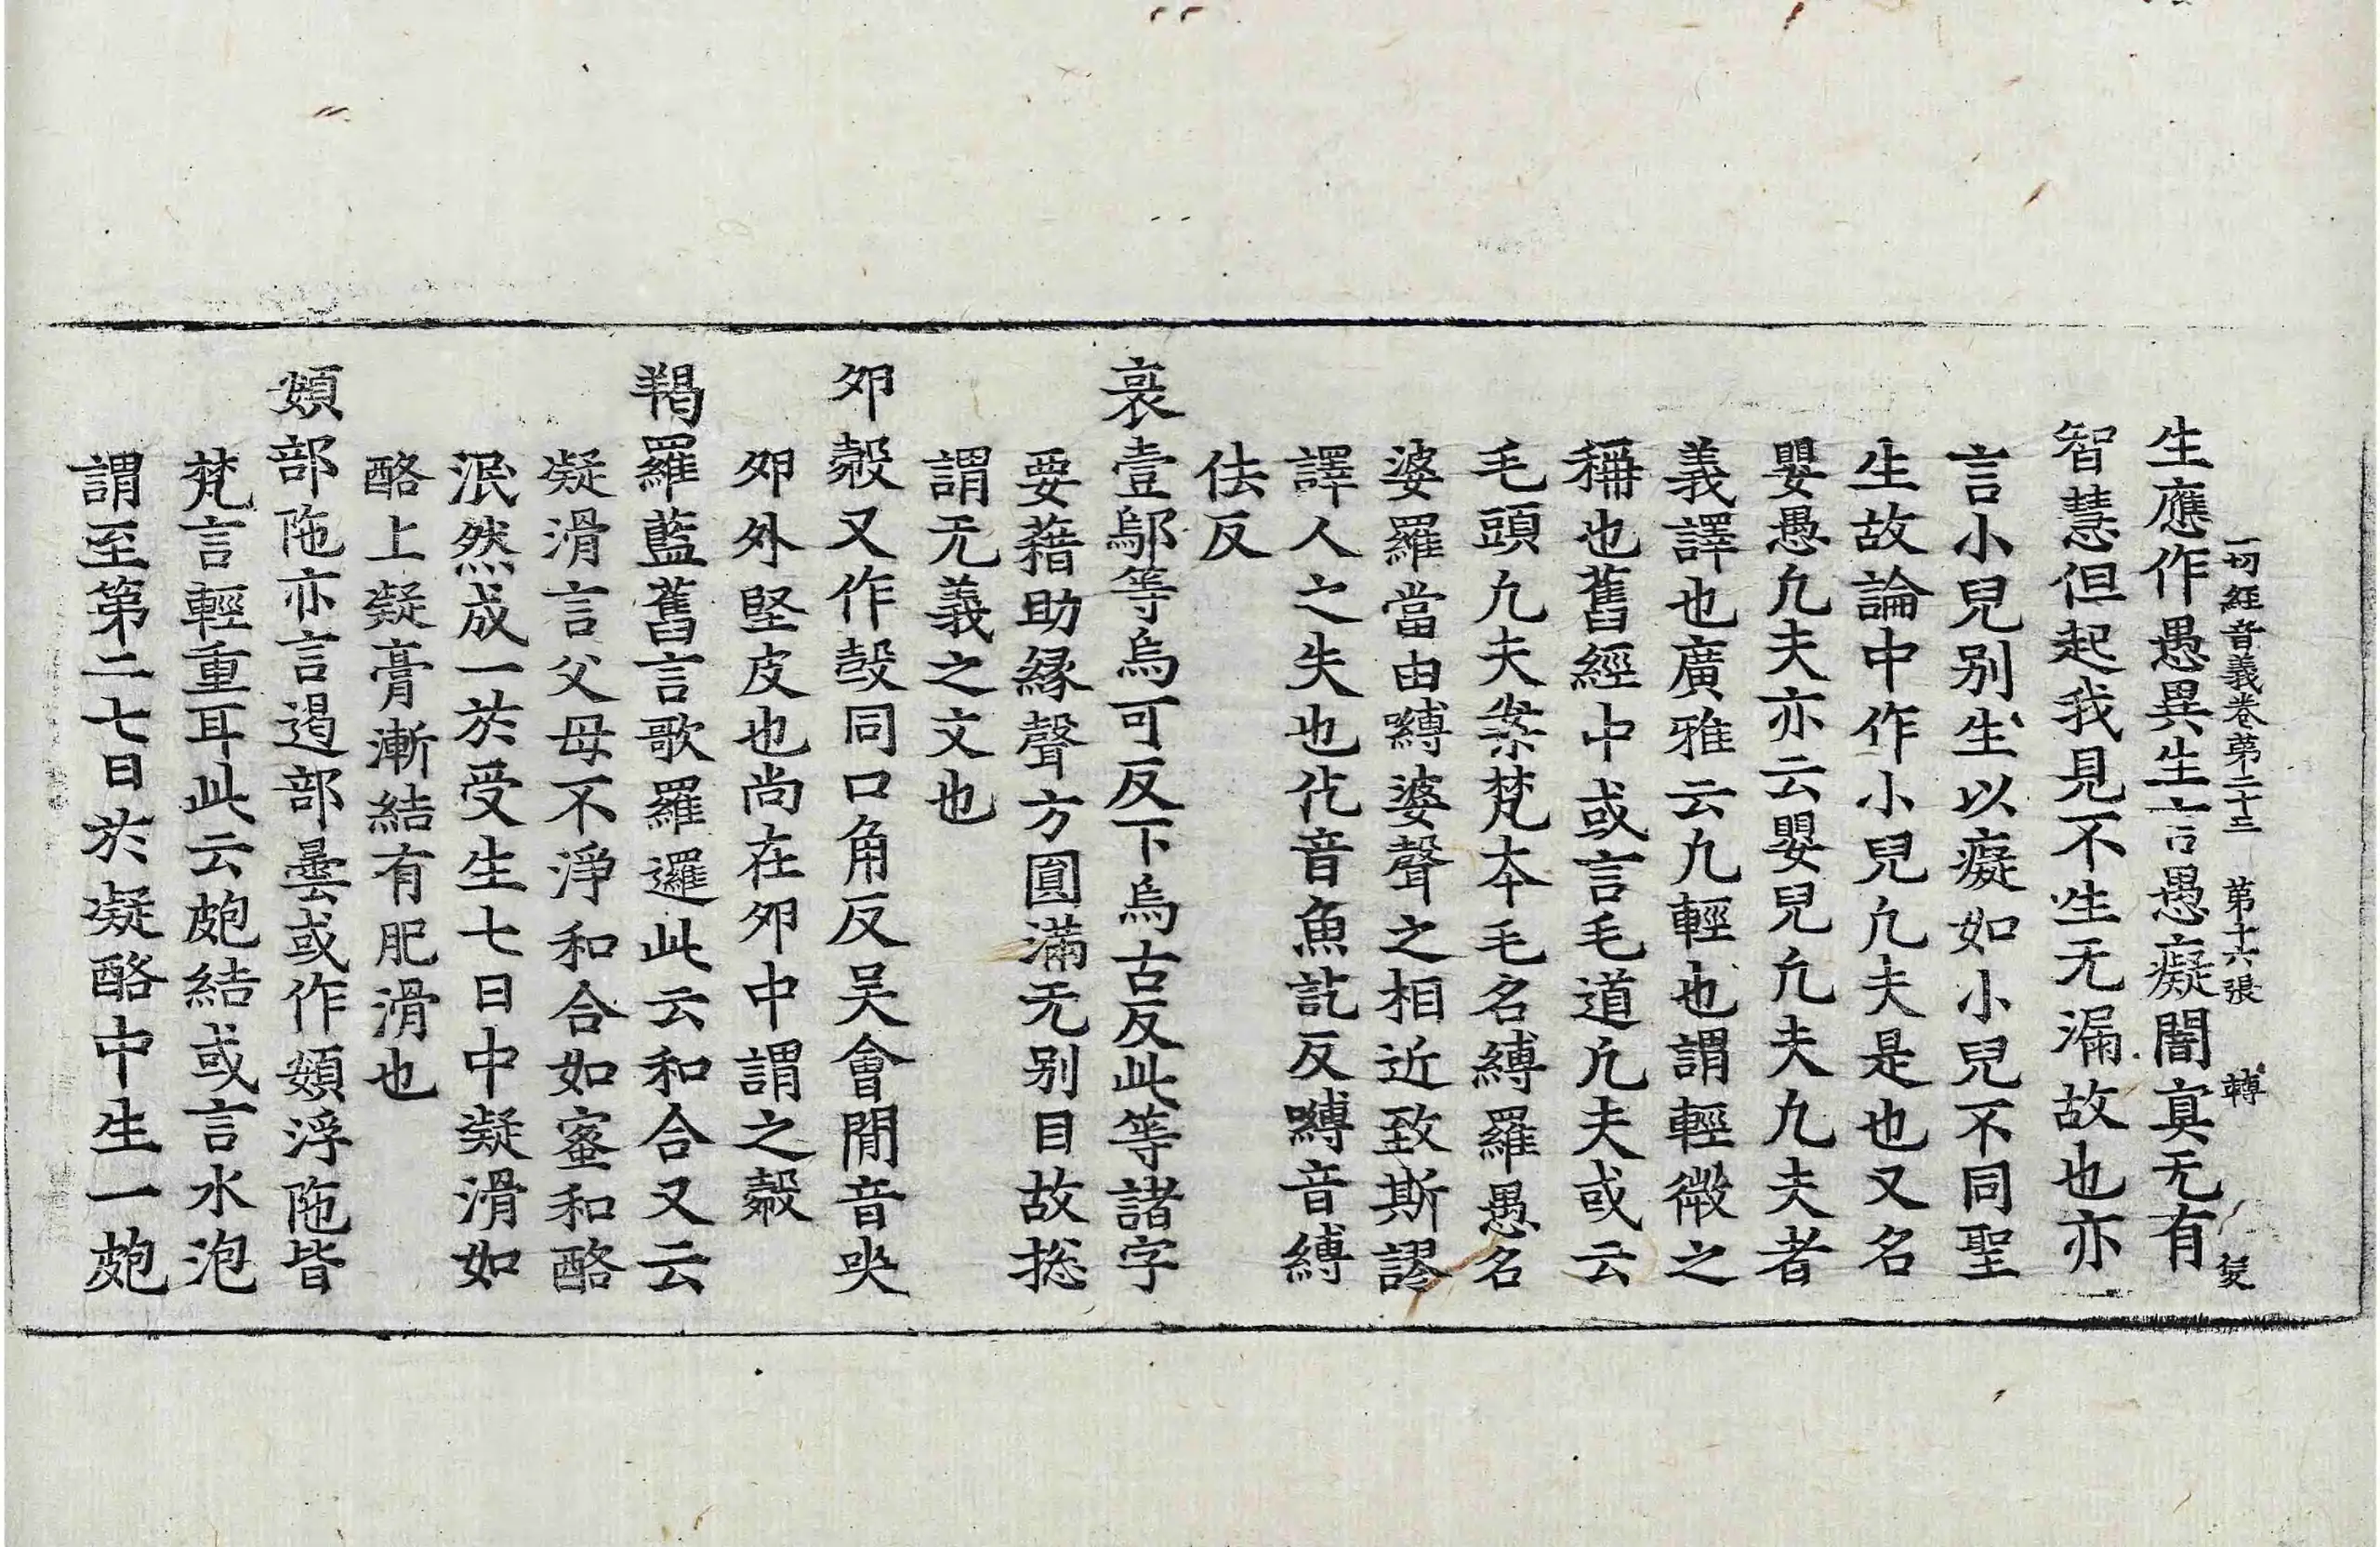 一切經音義卷第二十三 第十六張 轉
生應作愚異生言愚癡闇㝠无有
智慧但起我見不生无漏故也亦
言小兒别生以癡如小兒不同聖
生故論中作小兒凡夫是也又名
嬰愚凡夫亦云嬰兒凡夫凡夫者
義譯也廣雅云凡輕也謂輕微之
稱也舊經中或言毛道凡夫或云
毛頭凡夫案梵夲毛名縛羅愚名
婆羅當由嚩婆聲之相近致斯謬
譯人之失也仡音魚訖反嚩音縛
佉反
裒壹鄔等烏可反下烏古反此等諸字
要藉助縁聲方圓滿无别目故捴
謂无義之文也
夘㝅又作㱿同口角反吴會閒音哭
夘外堅皮也尚在夘中謂之㝅
羯羅藍舊言歌羅邏此云和合又云
凝滑言父母不淨和合如蜜和酪
泯然成一於受生七日中凝滑如
酪上凝膏漸結有肥滑也
頞部陁亦言遏部曇或作頞浮陁皆
梵言輕重耳此云皰結或言水泡
謂至第二七日於凝酪中生一皰